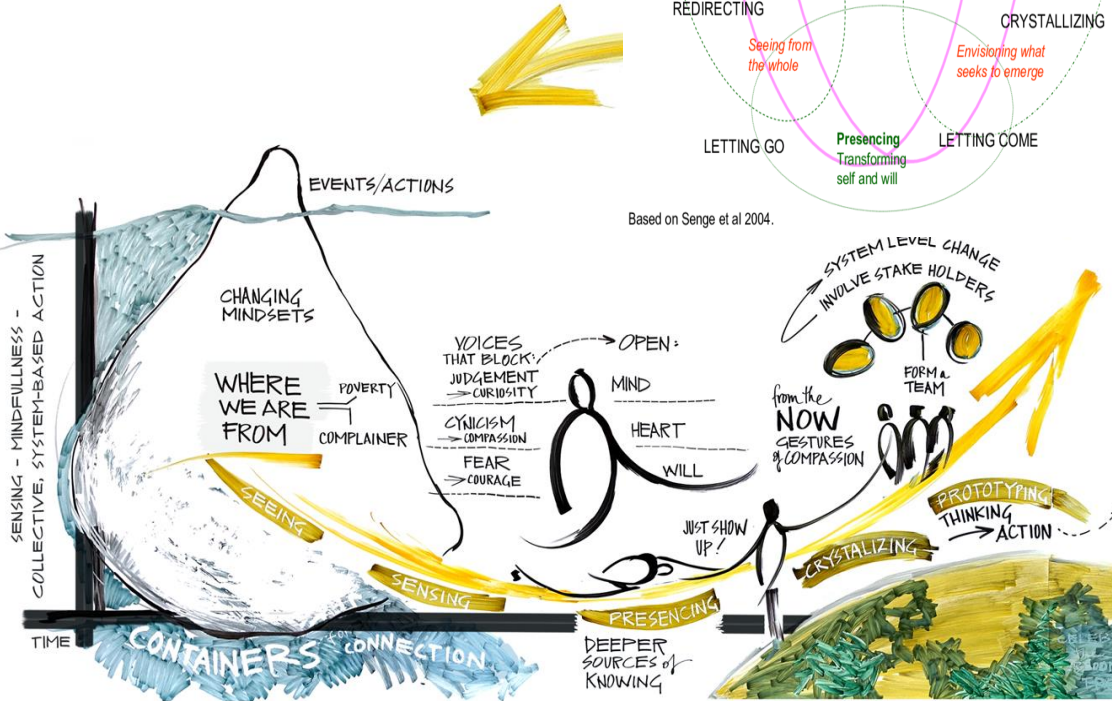 REDIRECTING
CRYSTALLIZING
Seeing from
the whole
Envisioning what
seeks to emerge
LETTING GO
Presencing
Transforming
self and will
LETTING COME
Based on Senge et al 2004.
EVENTS/ACTIONS
SENSING - MINDFULLNESS -
COLLECTIVE, SYSTEM-BASED ACTION
CHANGING
MINDSETS
WHERE
WE ARE
FROM
POVERTY
COMPLAINER
VOICES
THAT BLOCK:
JUDGEMENT
CURIOSITY
CYNICISM
COMPASSION
FEAR
COURAGE
OPEN:
MIND
HEART
WILL
SYSTEM LEVEL CHANGE
INVOLVE STAKE HOLDERS
FORM a
TEAM
from the
NOW
GESTURES
of COMPASSION
JUST SHOW
UP!
SEEING
SENSING
PRESENCING
CRYSTALIZING
PROTOTYPING
THINKING
ACTION
DEEPER
SOURCES of
KNOWING
TIME
CONTAINERS for CONNECTION